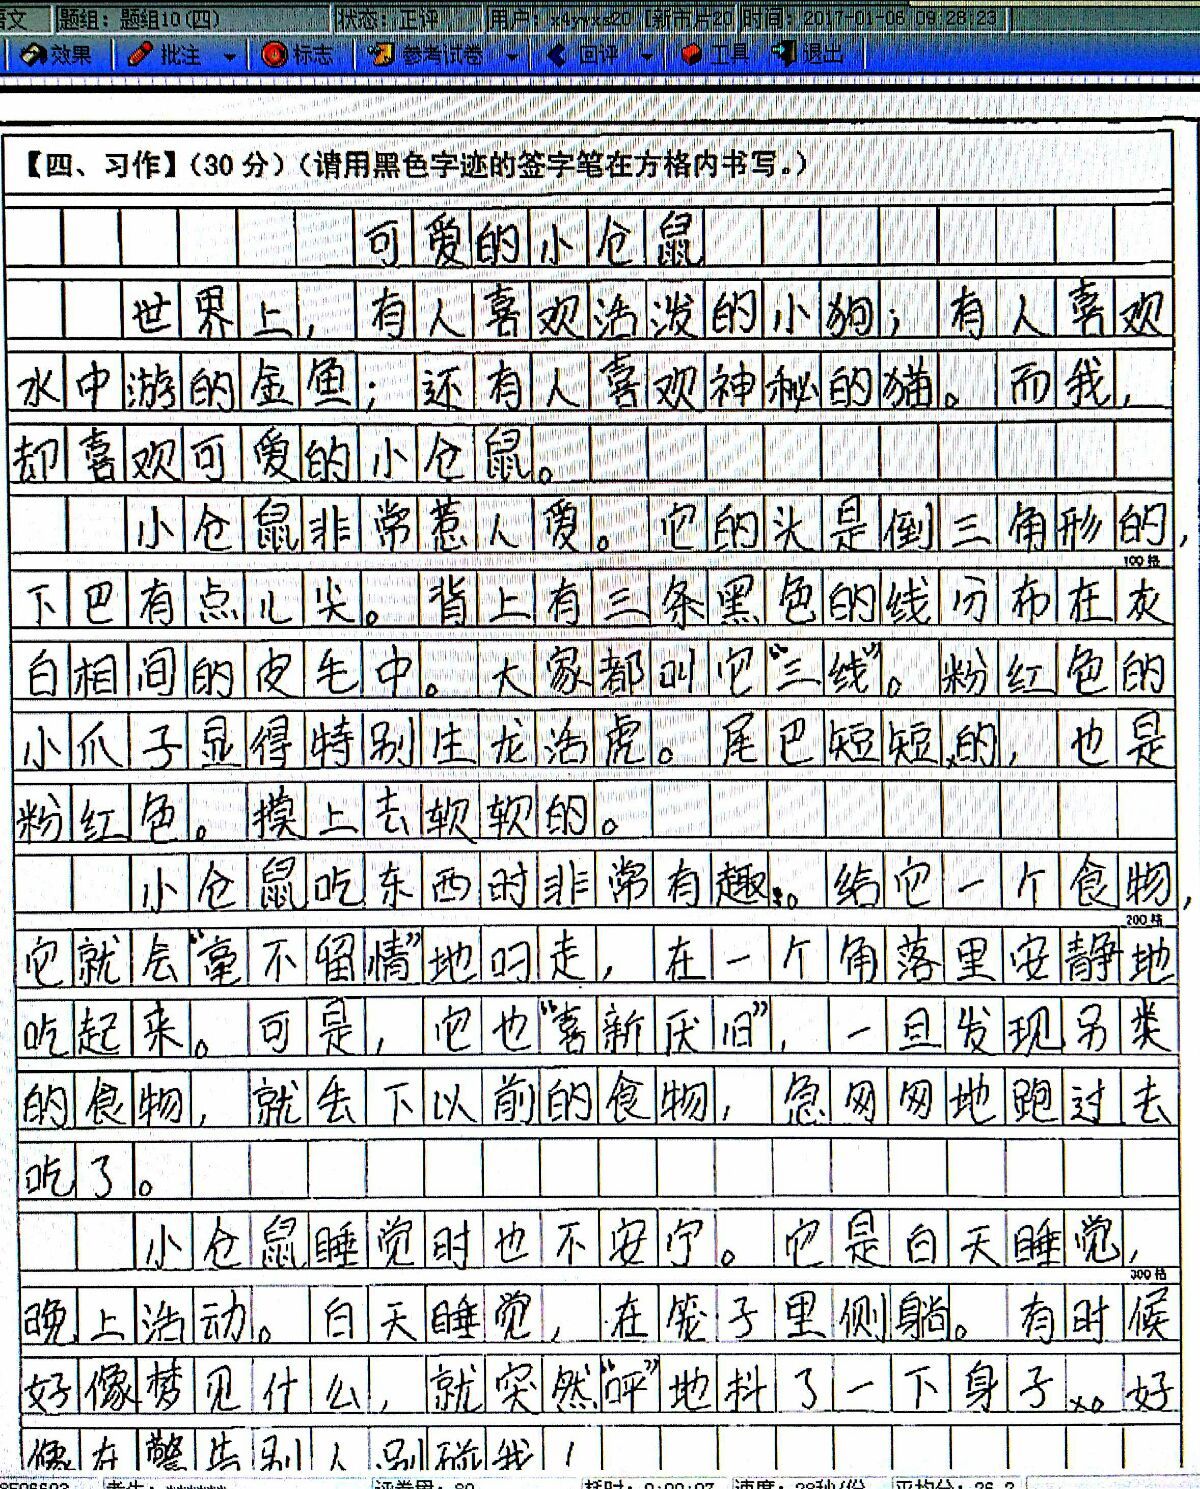 语文 题组：题组10(四) 状态：正评 用户：x4yyxs20 [新市片20 时间：2017-01-06 09:28:23
效果 批注 标志 参考试卷 回评 工具 退出
【四、习作】（30分）（请用黑色字迹的签字笔在方格内书写。）
可爱的小仓鼠
世界上，有人喜欢活泼的小狗；有人喜欢
水中游的金鱼；还有人喜欢神秘的猫。而我，
却喜欢可爱的小仓鼠。
小仓鼠非常惹人爱。它的头是倒三角形的，
100格
下巴有点儿尖。背上有三条黑色的线分布在灰
白相间的皮毛中。大家都叫它“三线”。粉红色的
小爪子显得特别生龙活虎。尾巴短短的，也是
粉红色。摸上去软软的。
小仓鼠吃东西时非常有趣。给它一个食物，
200格
它就会“毫不留情”地叼走，在一个角落里安静地
吃起来。可是，它也“喜新厌旧”，一旦发现另类
的食物，就丢下以前的食物，急匆匆地跑过去
吃了。
小仓鼠睡觉时也不安宁。它是白天睡觉，
300格
晚上活动。白天睡觉，在笼子里侧躺。有时候
好像梦见什么，就突然“呯”地抖了一下身子。好
像在警告别人别碰我！
考生：****** 评卷量：80 耗时：0:00:07 速度：28秒/份 平均分：26.2